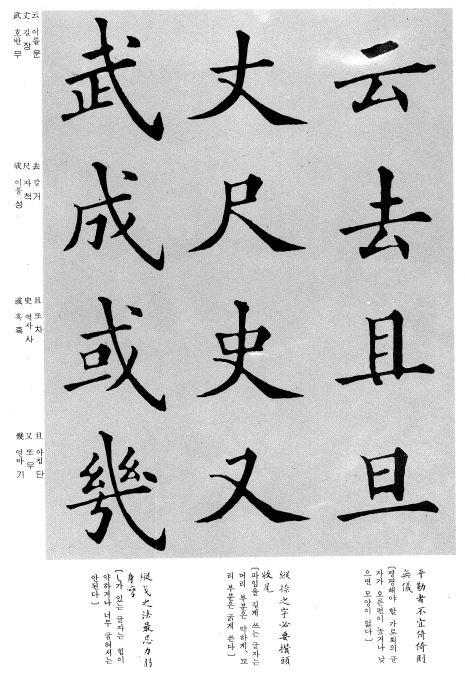 云去且旦
丈尺史又
武成或幾
云 이를 운
丈 길 장
武 호반 무
去 갈 거
尺 자 척
成 이룰 성
且 또 차
史 역사 사
或 혹 혹
旦 아침 단
又 또 우
幾 얼마 기
平勒者不宜倚倚則
無儀
[평평해야 할 가로획의 글
자가 오른편이 높거나 낮
으면 모양이 없다]
縱捺之字必要攢頭
收尾
[파임을 길게 쓰는 글자는
머리 부분은 약하게, 꼬
리 부분은 굵게 쓴다]
縱戈之法最忌力弱
身彎
[가 있는 글자는 힘이
약하거나 너무 굽혀서는
안된다]